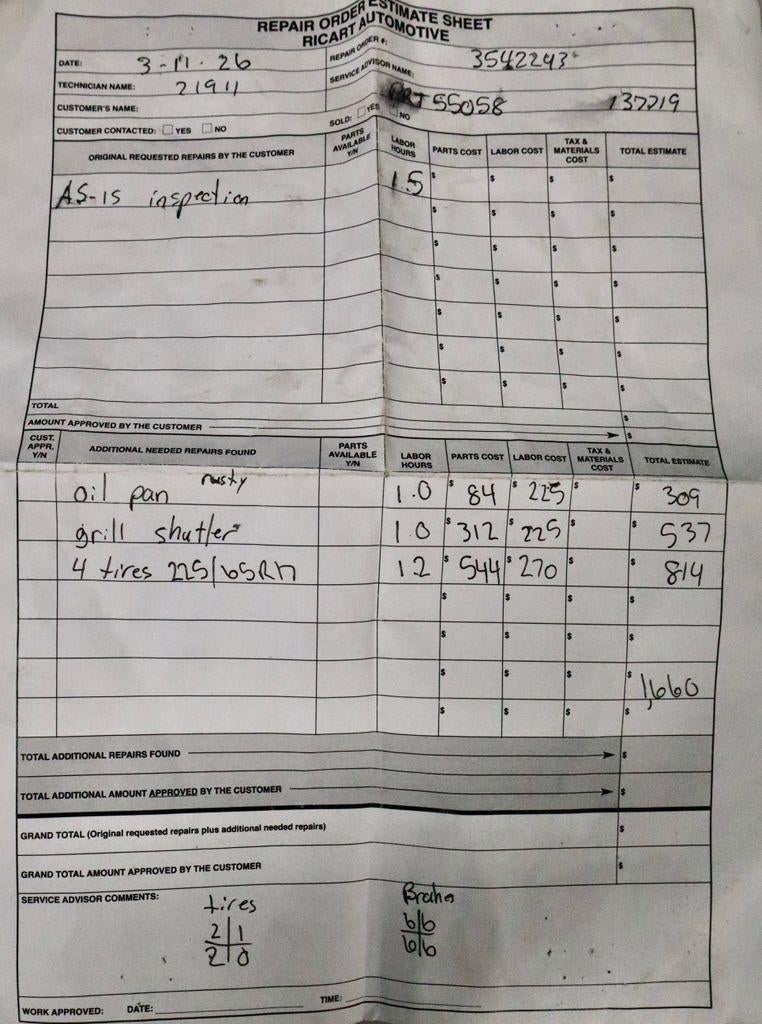 REPAIR ORDER ESTIMATE SHEET
RICART AUTOMOTIVE
DATE: 3-11-26 REPAIR ORDER #: 3542243
TECHNICIAN NAME: 21911 SERVICE ADVISOR NAME:
CUSTOMER'S NAME: PRJ 55058 137719
CUSTOMER CONTACTED: YES NO SOLD: YES NO
ORIGINAL REQUESTED REPAIRS BY THE CUSTOMER PARTS AVAILABLE Y/N LABOR HOURS PARTS COST LABOR COST TAX & MATERIALS COST TOTAL ESTIMATE
AS-IS inspection 1.5 $ $ $ $
$ $ $ $
$ $ $ $
$ $ $ $
$ $ $ $
$ $ $ $
$ $ $ $
TOTAL $
AMOUNT APPROVED BY THE CUSTOMER $
CUST. APPR. Y/N ADDITIONAL NEEDED REPAIRS FOUND PARTS AVAILABLE Y/N LABOR HOURS PARTS COST LABOR COST TAX & MATERIALS COST TOTAL ESTIMATE
oil pan rusty 1.0 $ 84 $ 225 $ $ 309
grill shutter 1.0 $ 312 $ 225 $ $ 537
4 tires 225/65R17 1.2 $ 544 $ 270 $ $ 814
$ $ $ $
$ $ $ $
$ $ $ $ 1,660
$ $ $ $
TOTAL ADDITIONAL REPAIRS FOUND $
TOTAL ADDITIONAL AMOUNT APPROVED BY THE CUSTOMER $
GRAND TOTAL (Original requested repairs plus additional needed repairs) $
GRAND TOTAL AMOUNT APPROVED BY THE CUSTOMER $
SERVICE ADVISOR COMMENTS: tires Brakes
2 1 6 6
2 0 6 6
WORK APPROVED: DATE: TIME: